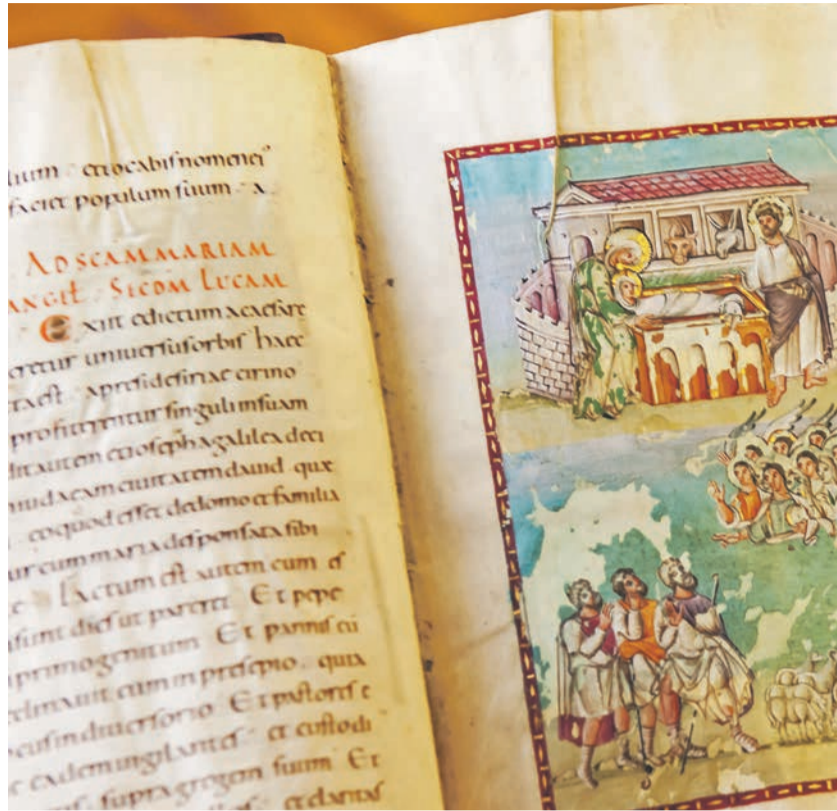 lium et uocabis nomen ei
faciet populum suum a
AD SCAM MARIAM
ANGEL SICDM LUCAM
Exiit edictum a caesare
eretur universus orbis haec
ta est a preside siriae cirino
profiterentur singuli in suam
dit autem et ioseph a galilea de ci
in iudaeam civitatem david quae
eo quod esset de domo et familia
ur cum maria desponsata sibi
e factum est autem cum es
sunt dies ut pareret Et pepe
primogenitum Et pannis eu
clinavit eum in presepio quia
ocus in diversorio Et pastores e
e eadem vigilantes et custodi
supra gregem suum Et
et claritas